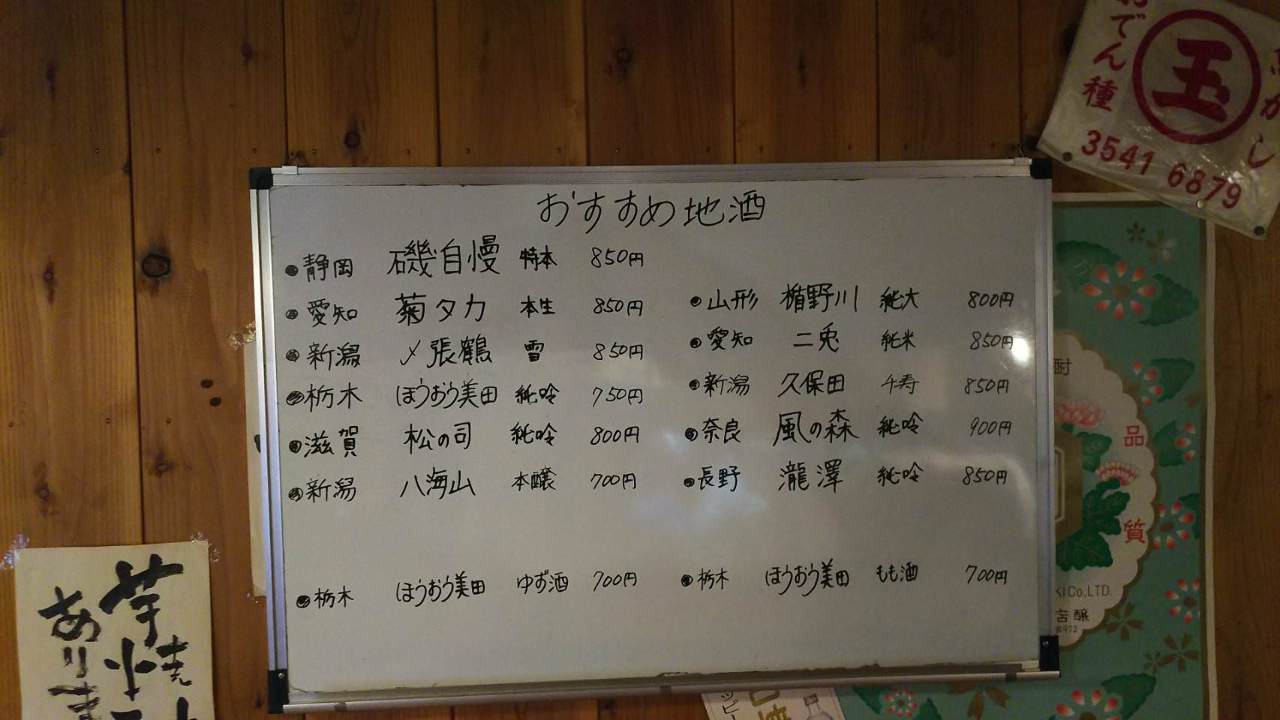 おすすめ地酒
●静岡 磯自慢 特本 850円
●愛知 菊タカ 本生 850円
●新潟 〆張鶴 雪 850円
●栃木 ほうおう美田 純吟 750円
●滋賀 松の司 純吟 800円
●新潟 八海山 本醸 700円
●山形 楯野川 純大 800円
●愛知 二兎 純米 850円
●新潟 久保田 千寿 850円
●奈良 風の森 純吟 900円
●長野 瀧澤 純吟 850円
●栃木 ほうおう美田 ゆず酒 700円
●栃木 ほうおう美田 もも酒 700円
おでん種
玉
3541 6879
品
質
Co.,LTD.
芋焼
ありま